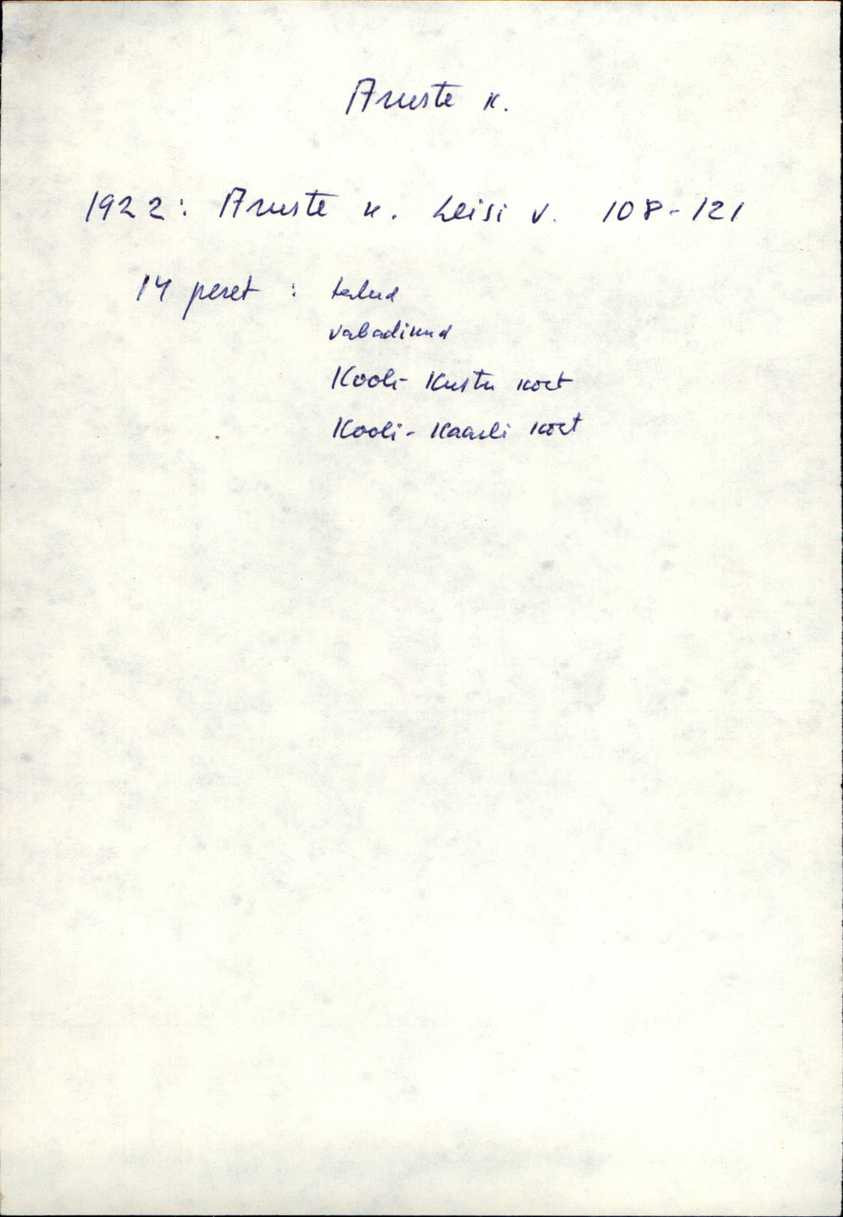 Aruste k.
1922: Aruste k. Leisi v. 108-121
14 peret : talud
vabadikud
Kooli-Kustu koct
Kooli-Kaarli koct